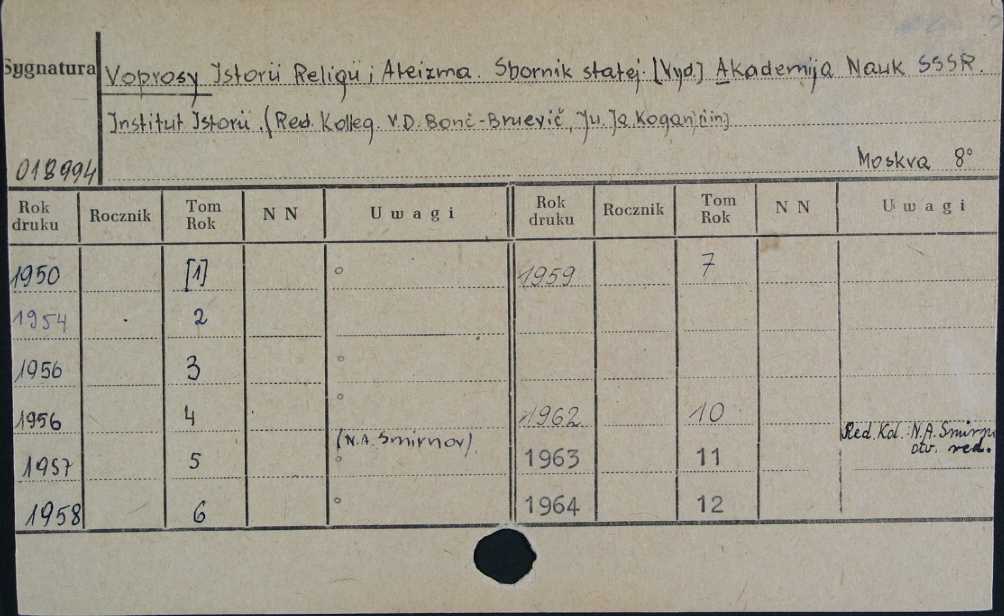 Sygnatura
Voprosy Istorii Religii i Ateizma. Sbornik statej. [Vyd.] Akademija Nauk SSSR.
Institut Istorii. (Red. Kolleg. V.D. Bonč-Bruevič, Ju. Ja. Kogan, i in)
018994 Moskva 8°
Rok druku Rocznik Tom Rok NN Uwagi Rok druku Rocznik Tom Rok NN Uwagi
1950 [1] ° 1959 7
1954 2
1956 3 °
1956 4 ° 1962 10
1957 5 (N.A. Smirnov). ° 1963 11 Red. Kol.: N.A. otv. red.
1958 6 ° 1964 12